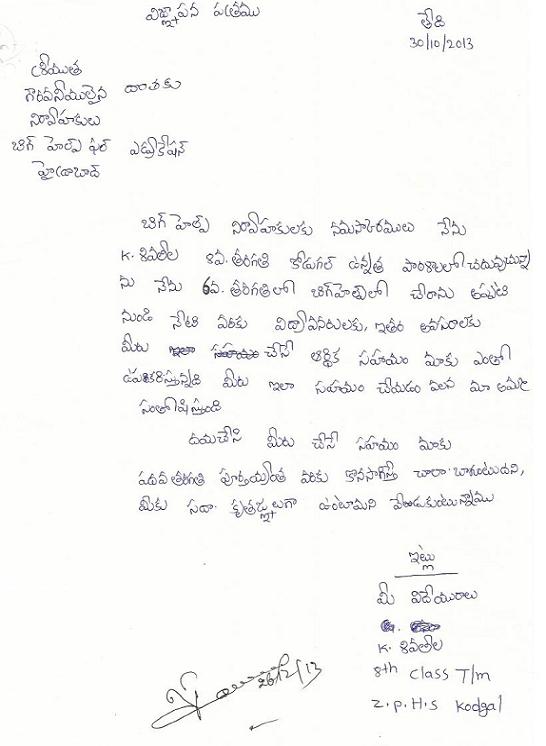 విజ్ఞాపన పత్రము
తేది
30/10/2013
శ్రీయుత
గౌరవనీయులైన దాతకు
నిర్వాహకులు
బిగ్ హెల్ప్ ఫర్ ఎడ్యుకేషన్
హైద్రాబాద్
బిగ్ హెల్ప్ నిర్వాహకులకు నమస్కారములు నేను
K. శివలీల 8వ. తరగతి కోడుగల్ ఉన్నత పాఠశాలలో చదువుచున్నా
ను నేను 6వ. తరగతిలో బిగ్‌హెల్ప్‌లో చేరాను అప్పటి
నుండి నేటి వరకు విద్యావసరులకు, ఇతర అవసరాలకు
మీరు ఇలా సహాయం చేసే ఆర్థిక సహాయం మాకు ఎంతో
ఉపకరిస్తున్నది మీరు ఇలా సహాయం చేయడం వలన మా అమ్మ
సంతోషిస్తుంది
దయచేసి మీరు చేసే సహయం మాకు
పదవ తరగతి పూర్తయ్యేంత వరకు కొనసాగిస్తే చాలా బాగుంటుదని,
మీకు సదా కృతజ్ఞులుగా ఉంటామని వేడుకుంటున్నాము
ఇట్లు
మీ విదేయురాలు
K. శివలీల
8th class T/m
Z.p.H.s Kodgal
26/12/13